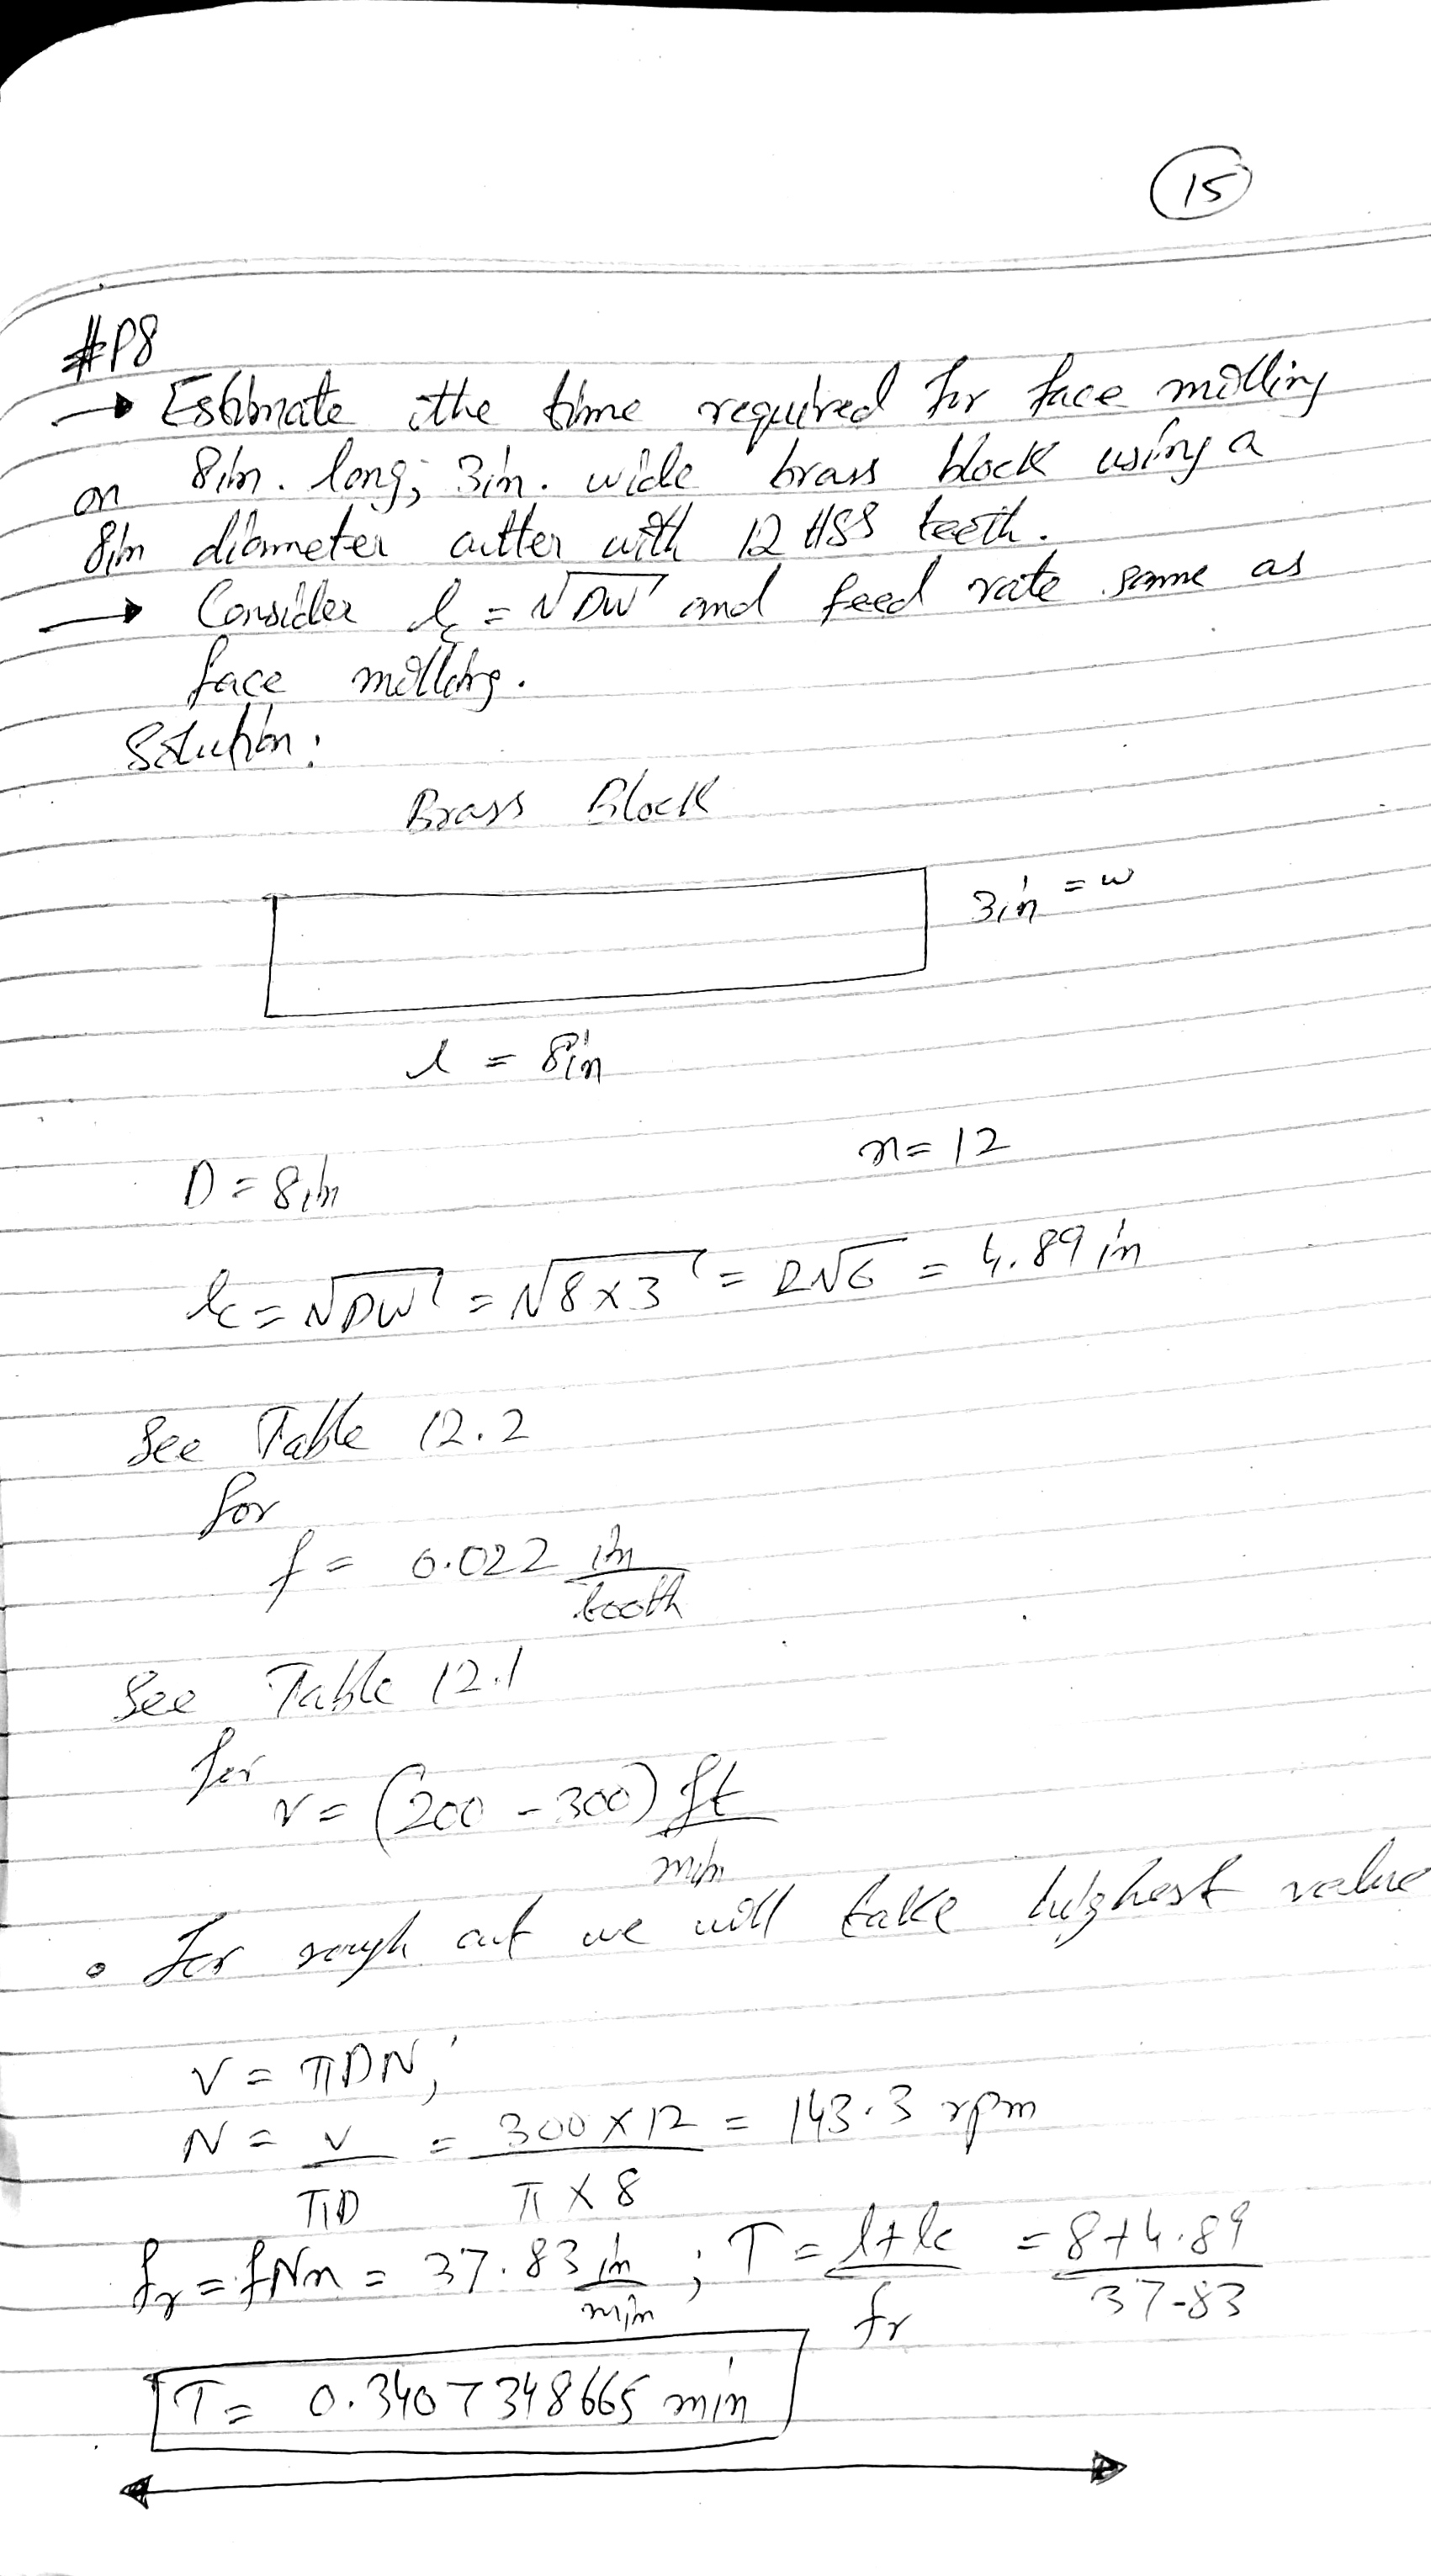 15
#P8
→ Estimate the time required for face milling
on 8in. long; 3in. wide brass block using a
8in diameter cutter with 12 HSS teeth.
→ Consider lc = √DW and feed rate same as
face milling.
Solution:
Brass Block
3in = w
l = 8in
D = 8in n = 12
lc = √DW = √8×3 = 2√6 = 4.89 in
See Table 12.2
for
f = 0.022 in/tooth
See Table 12.1
for
v = (200 - 300) ft/min
• For rough cut we will take highest value
V = πDN;
N = v/πD = 300×12/π×8 = 143.3 rpm
fr = fNn = 37.83 in/min ; T = l+lc/fr = 8+4.89/37.83
T = 0.3407348665 min